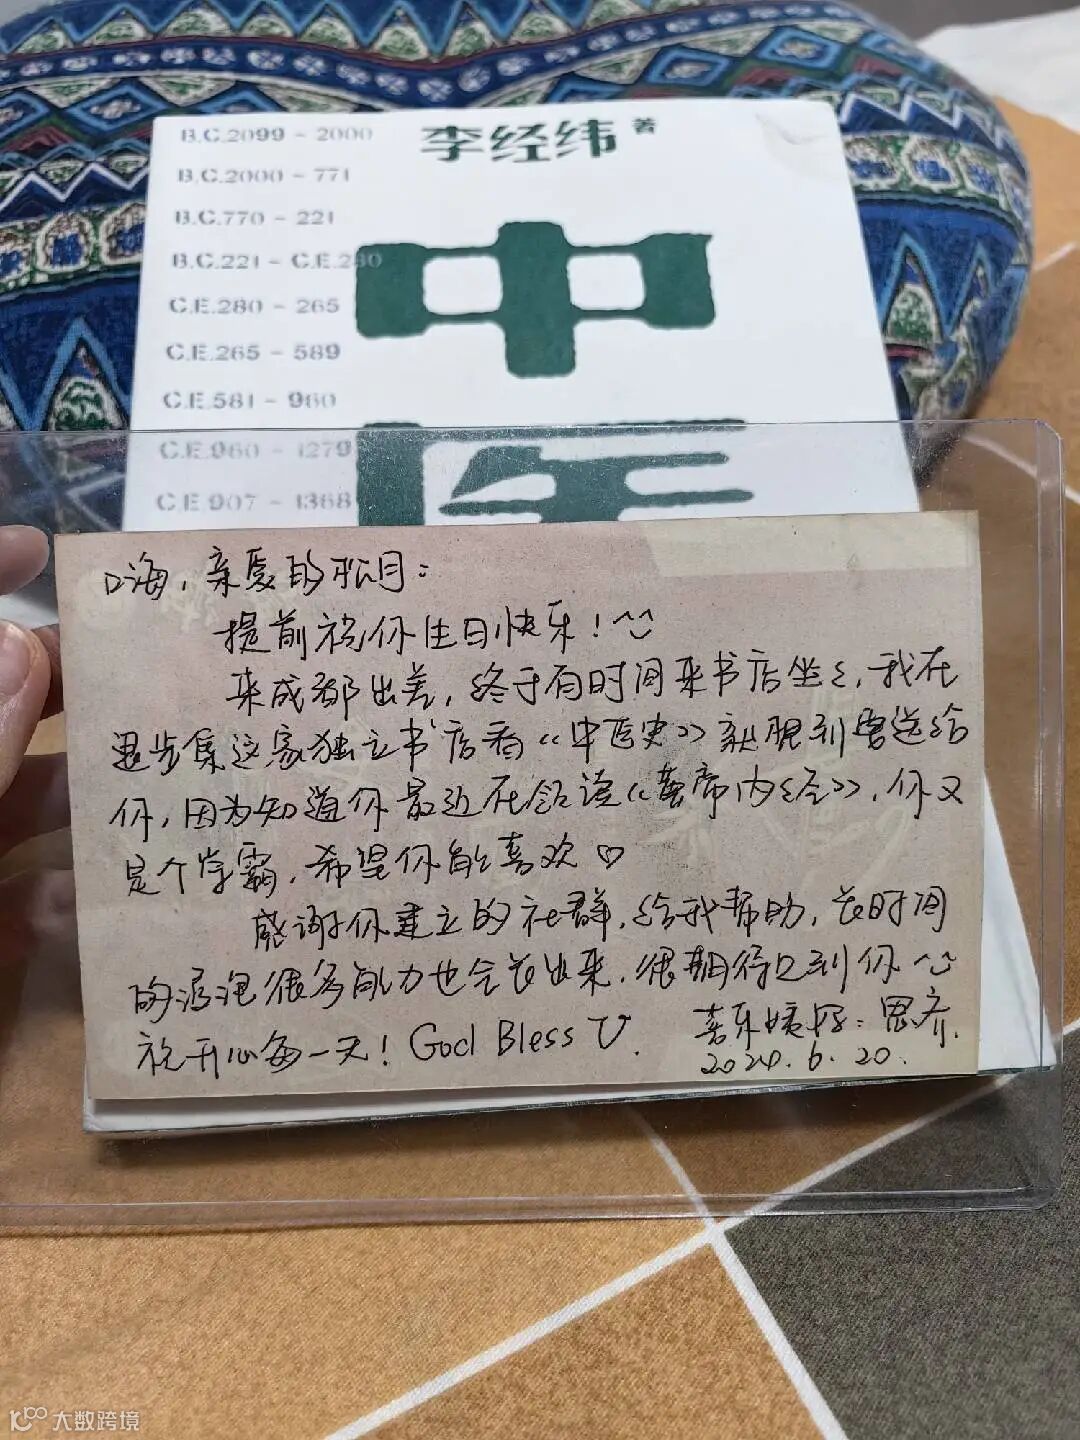 李经纬 著
B.C.2099 - 2000
B.C.2000 - 771
B.C.770 - 221
B.C.221 - C.E.280
C.E.280 - 265
C.E.265 - 589
C.E.581 - 960
C.E.960 - 1279
C.E.907 - 1368
中
医
嗨，亲爱的松月：
提前祝你生日快乐！^^
来成都出差，终于有时间来书店坐坐，我在
散步集这家独立书店看《中医史》就想到要送给
你，因为知道你最近在领读《黄帝内经》，你又
是个学霸，希望你能喜欢♡
感谢你建立的社群，给我帮助，长时间
的浸泡很多能力也会长出来，很期待见到你
祝开心每一天！God Bless U.
喜乐 思齐.
2024.6.20.
大数跨境